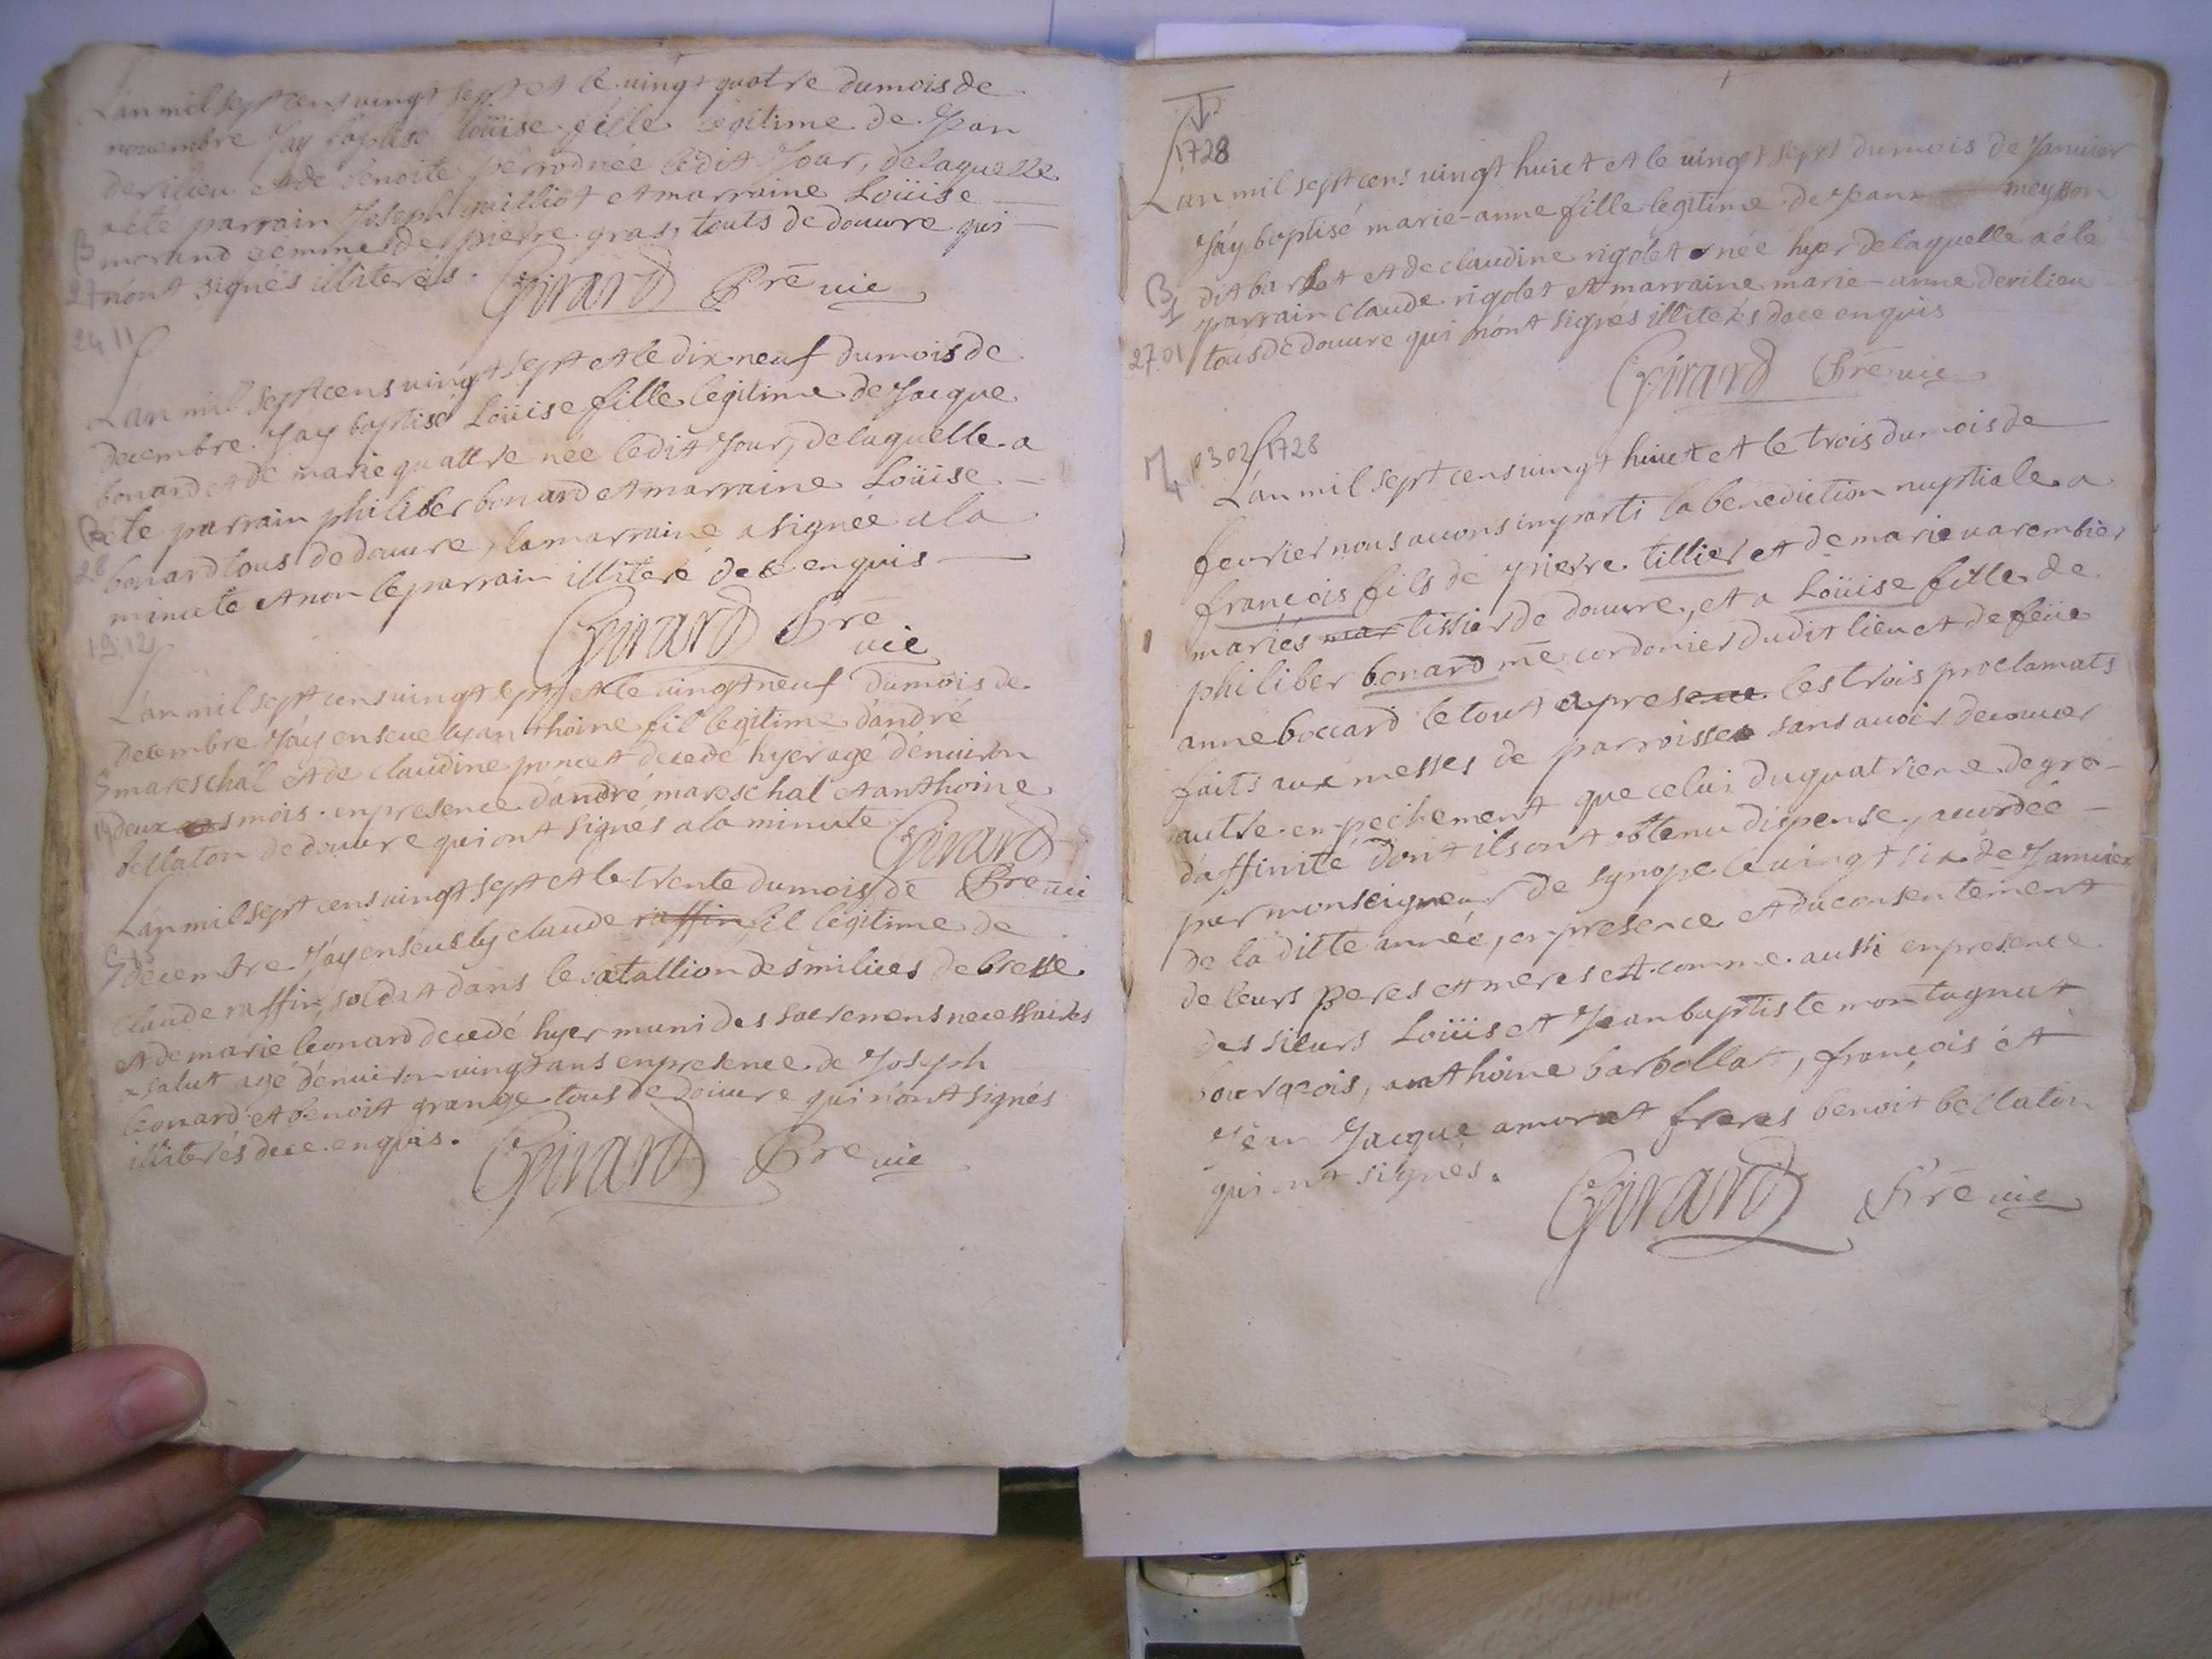 L'an mil sept cens vingt sept et le vingt quatre du mois de
novembre J'ay baptisé Loüise fille legitime de Jean
derilieu et de benoite perrod née ledit Jour, de laquelle
a été parrain Joseph guilliot et marraine Loüise
B morand femme de pierre gras, touts de douvre qui
27 n'ont signés illiterés.
Girard Prē vic
24 11
L'an mil sept cens vingt sept et le dix neuf du mois de
decembre J'ay baptisé Loüise fille legitime de Jacque
bonard et de marie quattre née ledit Jour, de laquelle a
été parrain philiber bonard et marraine Loüise
28 bonard tous de douvre, la marraine a signée a la
minute et non le parrain illiteré de ce enquis
19 12
Girard Prē
vic
L'an mil sept cens vingt sept et le vingt neuf du mois de
decembre J'ay ensevely anthoine fil legitime d'andré
S mareschal et de claudine poncet decedé hyer agé d'environ
deux mois. en presence d'andré mareschal et anthoine
bellaton de douvre qui ont signés a la minute
Girard
Prē vic
L'an mil sept cens vingt sept et le trente du mois de
S decembre J'ay ensevely claude raffin fil legitime de
claude raffin, soldat dans le batallion des milices de bresse
et de marie leonard decedé hyer muni des sacremens necessaires
a salut agé d'environ vingt ans en presence de Joseph
leonard et benoit grange tous de douvre qui n'ont signés
illiterés de ce enquis.
Girard Prē vic
1728
L'an mil sept cens vingt huict et le vingt sept du mois de Janvier
J'ay baptisé marie-anne fille legitime de Jean meysson
B dit barlet et de claudine rigolet née hyer de laquelle a été
1 parrain Claude rigolet et marraine marie-anne derilieu
27.01 tous de douvre qui n'ont signés illiterés de ce enquis
Girard Prē vic
M 03 02 1728
L'an mil sept cens vingt huict et le trois du mois de
fevrier nous avons imparti la benediction nuptiale a
françois fils de pierre tillier et de marie varembier
mariés mar tissier de douvre, et a Loüise fille de
philiber bonard mē cordonier dudit lieu et de feüe
anne boccard le tout apres les trois proclamats
faits aux messes de parroisse sans avoir decouver
autre empechement que celui du quatrieme degré
d'affinité dont ils ont obtenu dispense, accordée
par monseigneur de synope le vingt six de Janvier
de la ditte année, en presence et du consentement
de leurs peres et meres et comme aussi en presence
des sieurs Loüis et Jean baptiste montagnat
bourgeois, anthoine barbollat, françois et
Jean Jacque amorat freres benoit bellaton
qui ont signés.
Girard Prē vic